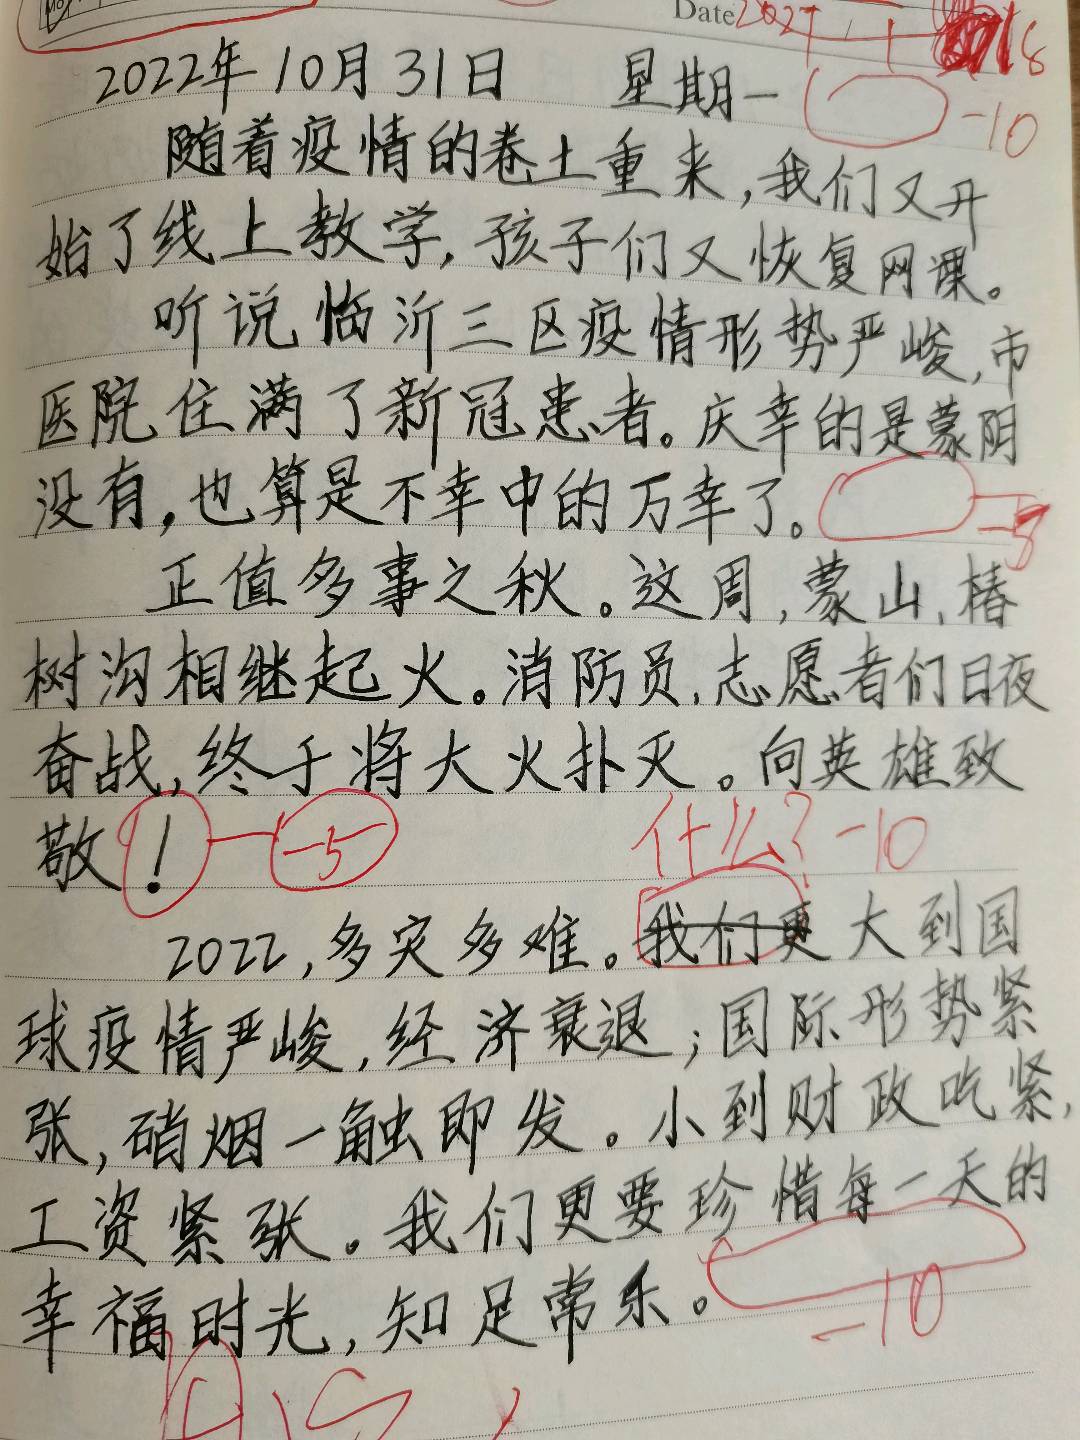 Date
2022年10月31日 星期一
-10
随着疫情的卷土重来,我们又开
始了线上教学,孩子们又恢复网课。
听说临沂三区疫情形势严峻,市
医院住满了新冠患者。庆幸的是蒙阴
没有,也算是不幸中的万幸了。
正值多事之秋。这周,蒙山、椿
树沟相继起火。消防员、志愿者们日夜
奋战,终于将大火扑灭。向英雄致
敬! -5 什么?-10
2022,多灾多难。我们更大到国
球疫情严峻,经济衰退;国际形势紧
张,硝烟一触即发。小到财政吃紧,
工资紧张。我们更要珍惜每一天的
幸福时光,知足常乐。
-10